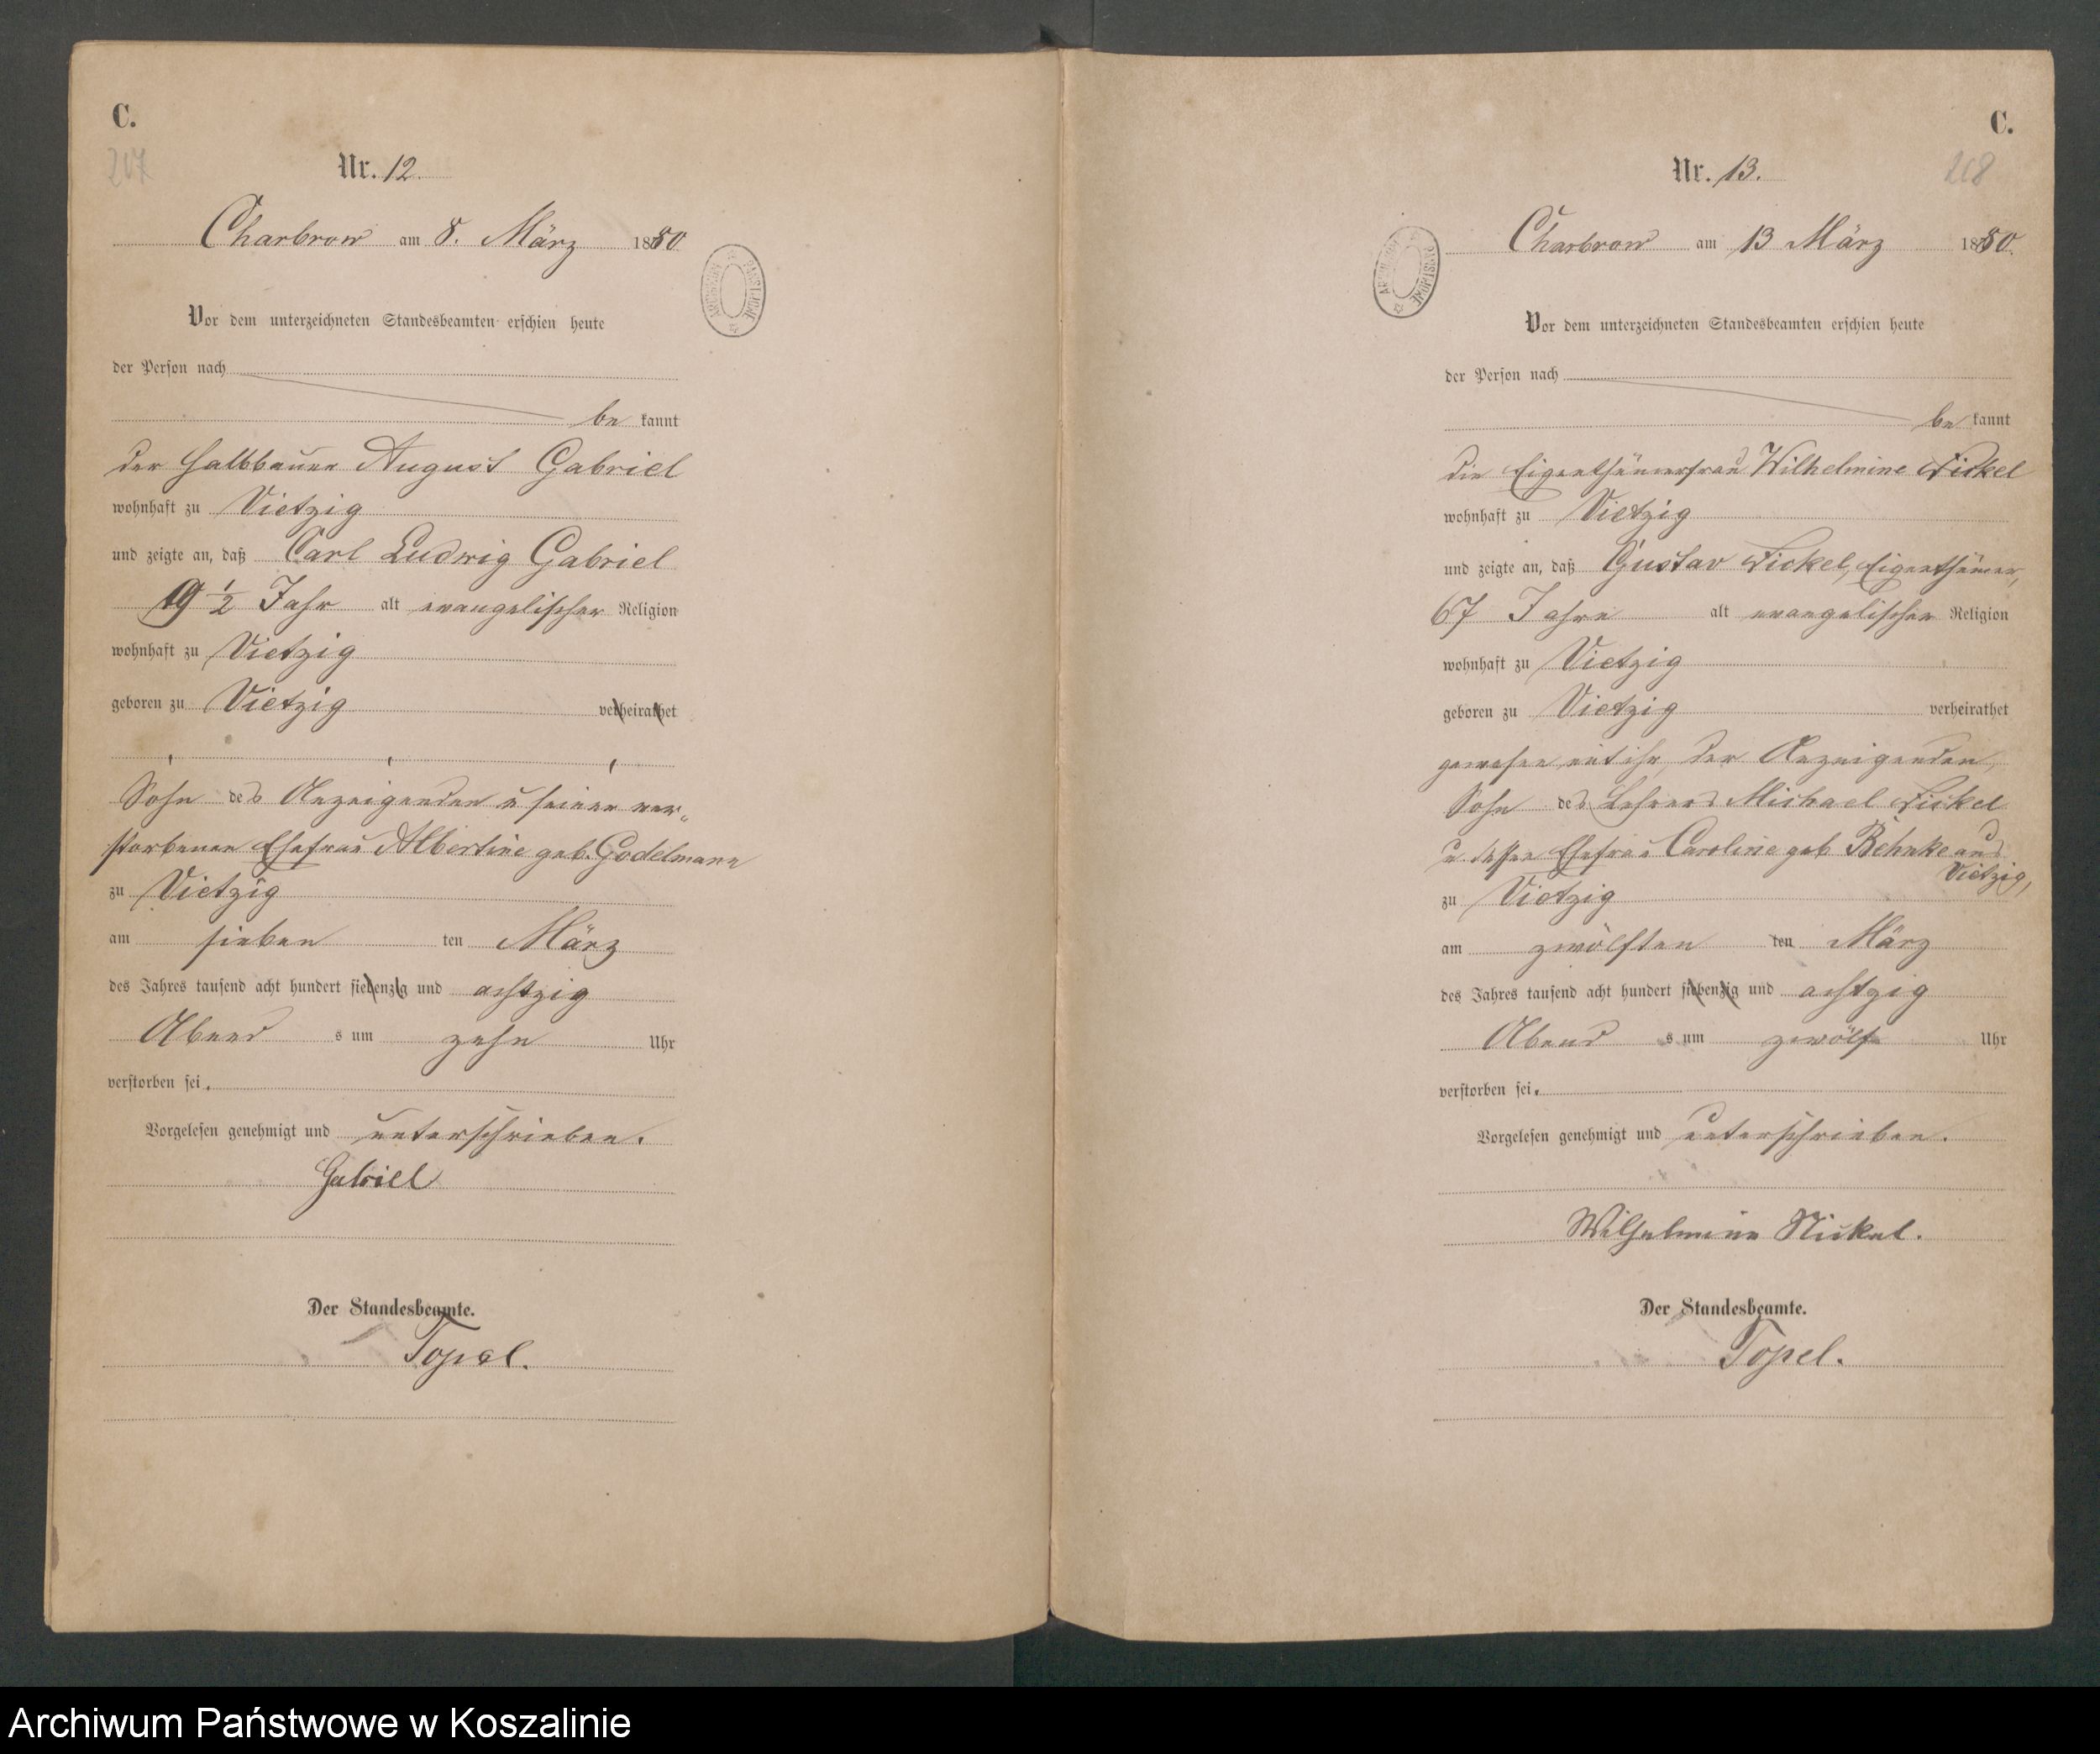 C.
207
Nr. 12.
Charbrow am 8. März 1880
Vor dem unterzeichneten Standesbeamten erschien heute
der Person nach
be kannt
der Halbbauer August Gabriel
wohnhaft zu Vietzig
und zeigte an, daß Carl Ludwig Gabriel
19 1/2 Jahr alt evangelischer Religion
wohnhaft zu Vietzig
geboren zu Vietzig verheirathet
Sohn des Anzeigenden u seiner ver„
storbenen Ehefrau Albertine geb. Godelmann
zu Vietzig
am sieben ten März
des Jahres tausend acht hundert siebenzig und achtzig
Abend s um zehn Uhr
verstorben sei.
Vorgelesen genehmigt und unterschrieben.
Gabriel
Der Standesbeamte.
Topel.
C.
208
Nr. 13.
Charbrow am 13 März 1880.
Vor dem unterzeichneten Standesbeamten erschien heute
der Person nach
be kannt
die Eigenthümerfrau Wilhelmine
wohnhaft zu Vietzig
und zeigte an, daß Gustav Eigenthümer,
67 Jahre alt evangelischer Religion
wohnhaft zu Vietzig
geboren zu Vietzig verheirathet
gewesen mit ihr, der Anzeigenden,
Sohn des Lehrers Michael
u dessen Ehefrau Caroline geb Behnke aus
Vietzig,
zu Vietzig
am zwölften ten März
des Jahres tausend acht hundert siebenzig und achtzig
Abend s um zwölf Uhr
verstorben sei.
Vorgelesen genehmigt und unterschrieben.
Wilhelmine Nickel.
Der Standesbeamte.
Topel.
Archiwum Państwowe w Koszalinie